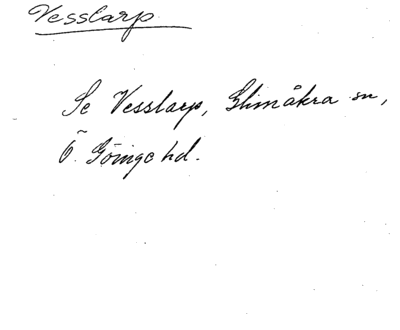 Vesslarp
Se Vesslarp, Glimåkra sn,
Ö. Göinge hd.